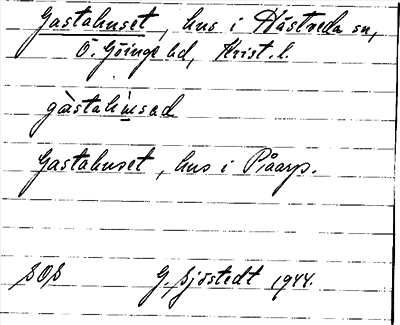 Gastahuset, hus i Hästveda sn,
Ö. Göinge hd, Krist. l.
Gastahuset, hus i Påarp.
SOS G. Sjöstedt 1944.